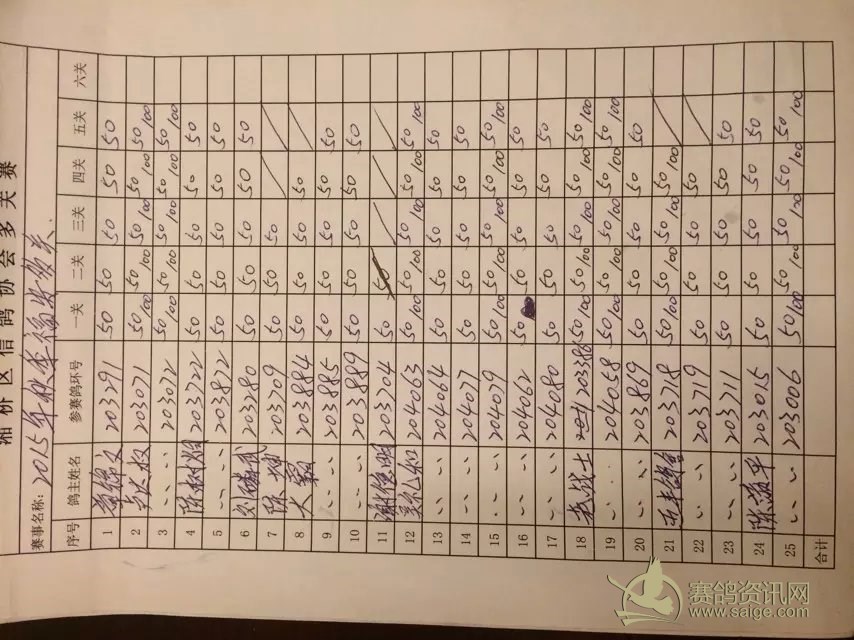 湘桥区信鸽协会多关赛
赛事名称: 2015年秋季福
序号 鸽主姓名 参赛鸽环号 一关 二关 三关 四关 五关 六关
1 203291 50 50 50 50 50
2 203071 50/100 50/100 50/100 50/100 50/100
3 〃 〃 203072 50/100 50 50/100 50/100 50/100
4 陈树 203722 50 50 50 50 50
5 〃 〃 203872 50 50 50 50 50
6 刘 203280 50 50 50 50 50
7 陈 203209 50 50 50 / /
8 大 203884 50 50 50 50 /
9 〃 〃 203885 50 50 50 50 50
10 〃 〃 203889 50 50 50 50 50
11 谢德明 203704 50 50 / / /
12 204063 50/100 50/100 50/100 50/100 50/100
13 〃 〃 204064 50 50 50 50 50
14 〃 〃 204077 50 50 50 50 50
15 〃 〃 204079 50/100 50/100 50/100 50/100 50/100
16 〃 〃 204062 50 50 50 50 50
17 〃 〃 204080 50 50 50 50 50
18 老战士 203386 50/100 50/100 50/100 50/100 50/100
19 〃 〃 204058 50/100 50/100 50/100 50/100 50/100
20 〃 〃 203869 50 50 50 50 50
21 203718 50/100 50/100 50/100 50/100 /
22 〃 〃 203719 50 50 50 50 /
23 〃 〃 203711 50 50 50 50 50
24 陈 平 203015 50 50 50 50 50
25 〃 〃 203006 50/100 50/100 50/100 50/100 50/100
合计
赛鸽资讯网
www.saige.com